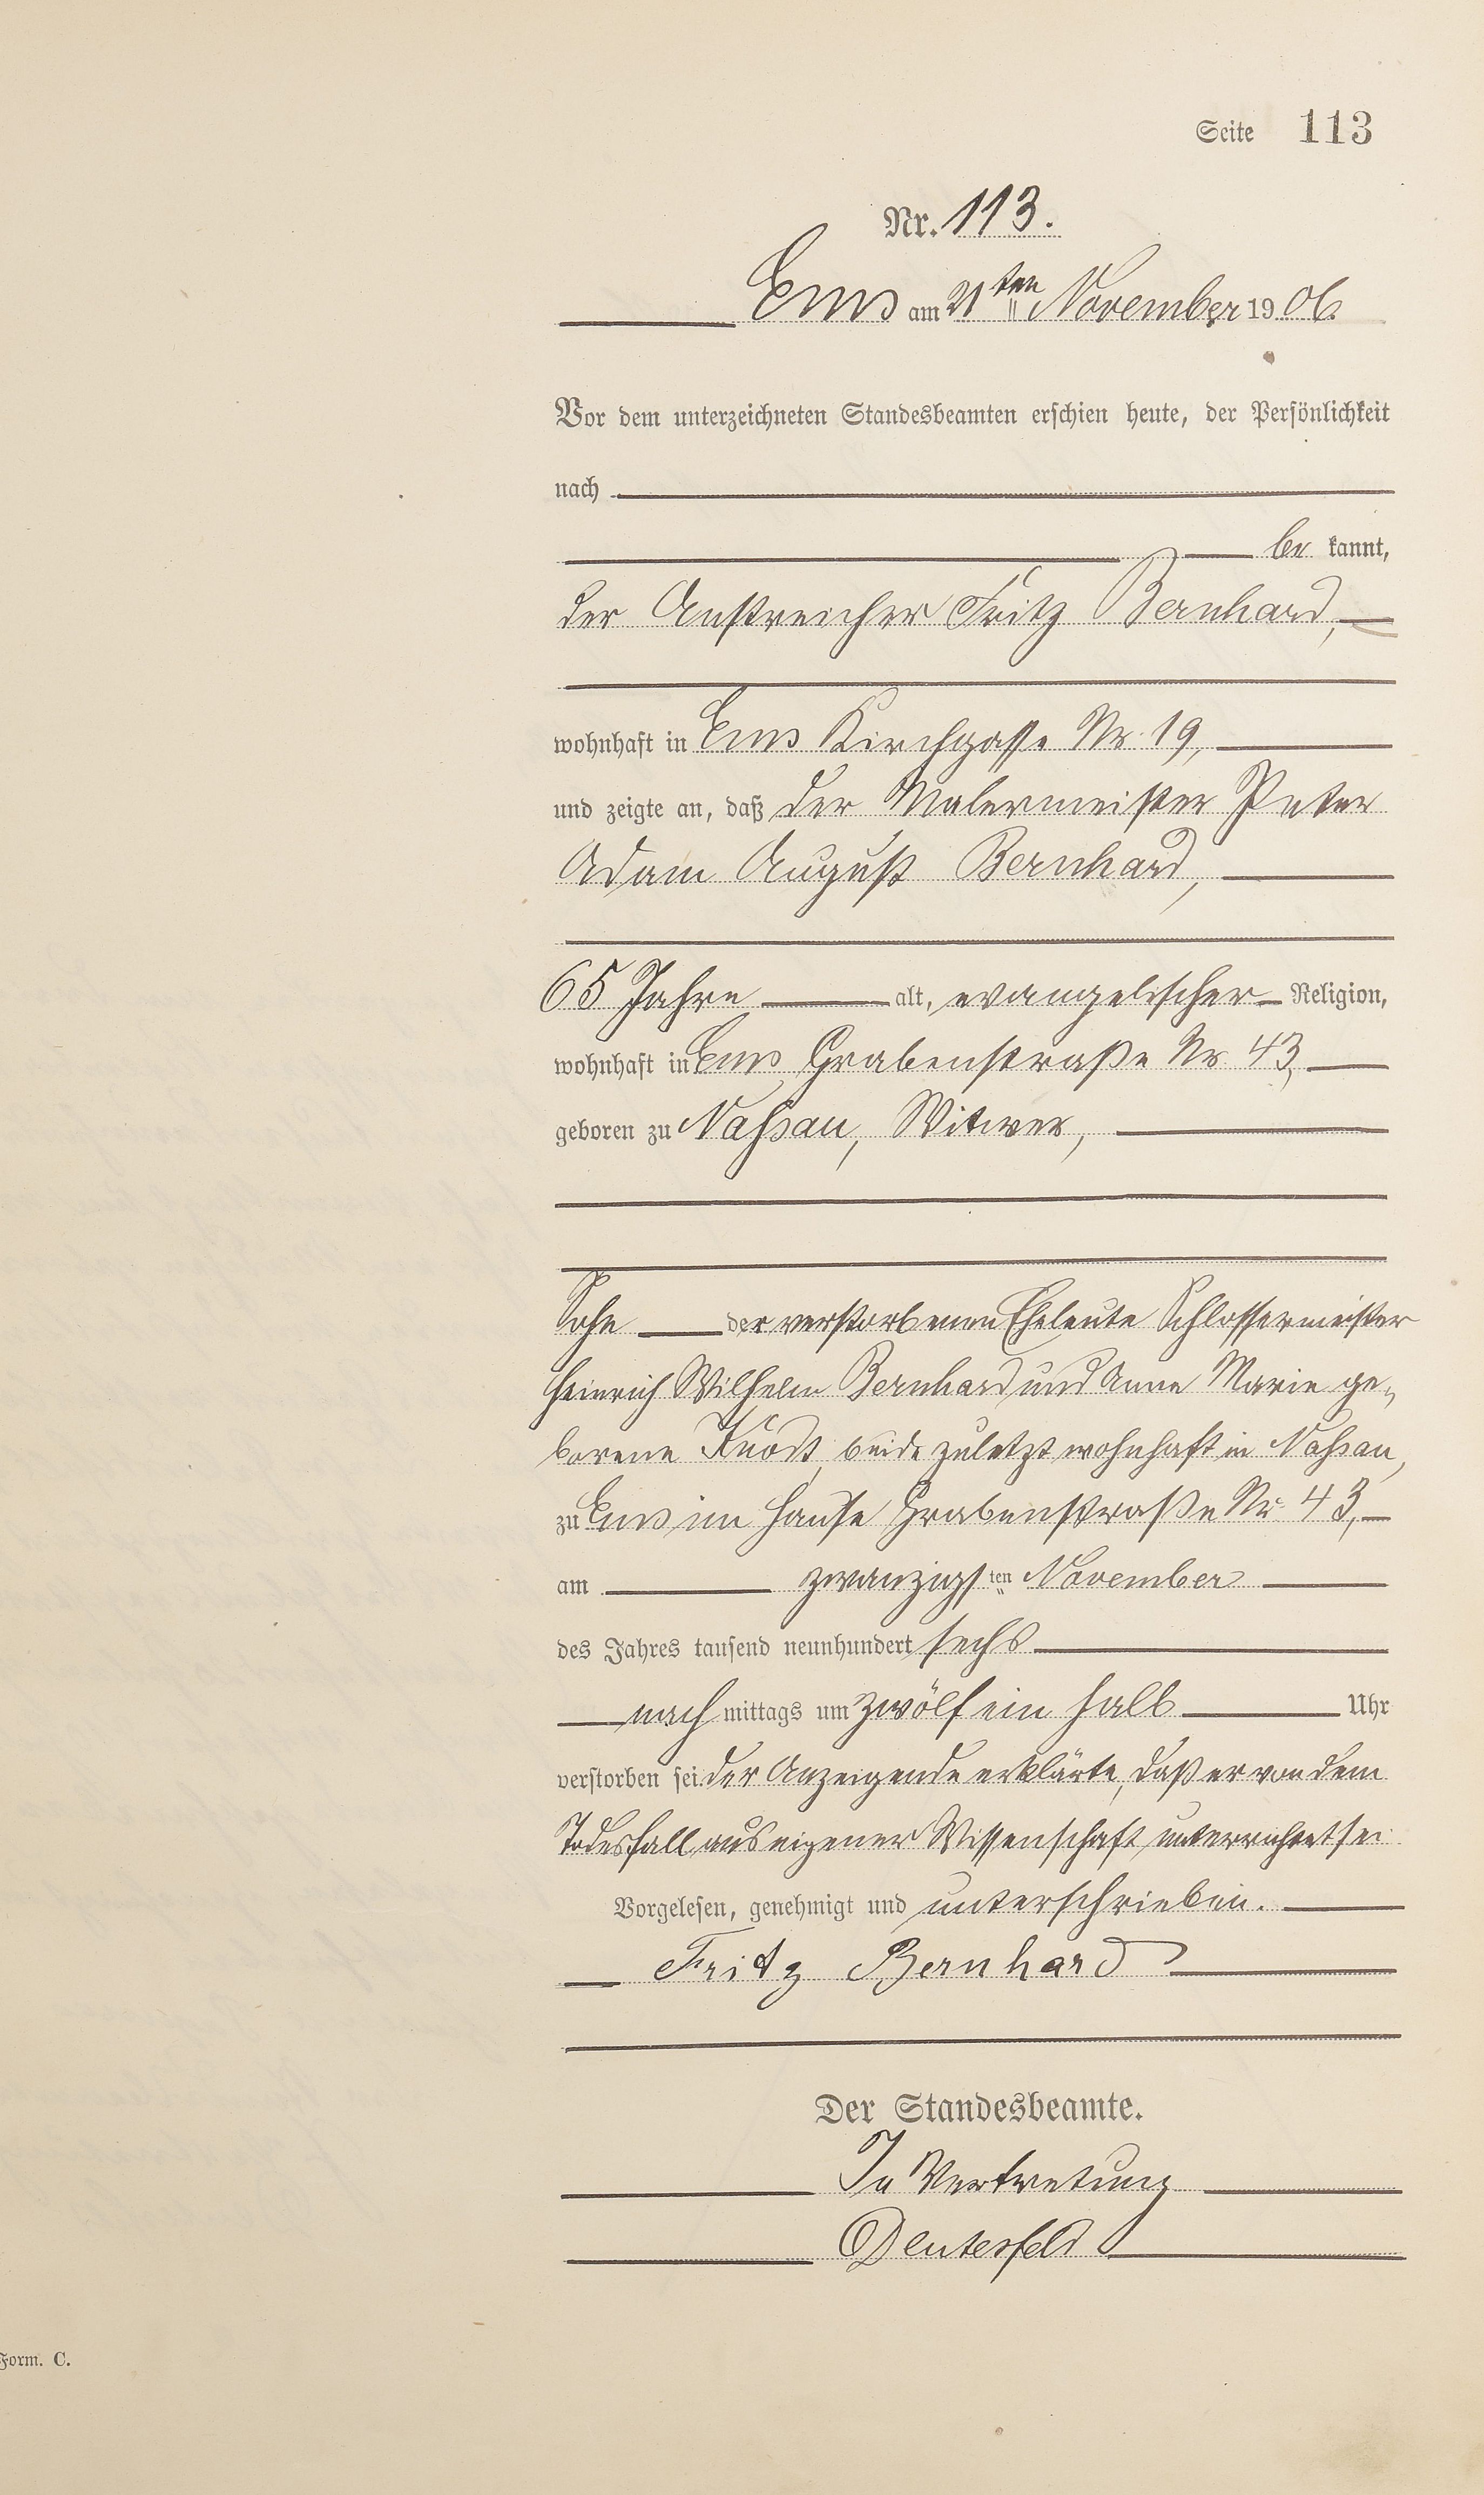 Seite 113
Nr. 113.
Ems am 21ten November 1906.
Vor dem unterzeichneten Standesbeamten erschien heute, der Persönlichkeit
nach
be kannt,
der Anstreicher Fritz Bernhard,
wohnhaft in Ems Kirchgasse Nr. 19,
und zeigte an, daß der Malermeister Peter
Adam August Bernhard,
65 Jahre alt, evangelischer Religion,
wohnhaft in Ems Grabenstraße Nr. 43,
geboren zu Nassau, Witwer,
Sohn der verstorbenen Eheleute Schlossermeister
Heinrich Wilhelm Bernhard und Anna Marie ge-
borene Knodt, beide zuletzt wohnhaft in Nassau,
zu Ems im Hause Grabenstraße Nr. 43,
am zwanzigsten November
des Jahres tausend neunhundert sechs
nach mittags um zwölf ein halb Uhr
verstorben sei. Der Anzeigende erklärte, daß er von dem
Todesfall aus eigener Wissenschaft unterrichtet sei
Vorgelesen, genehmigt und unterschrieben.
Fritz Bernhard
Der Standesbeamte.
In Vertretung
Deutesfeld
Form. C.